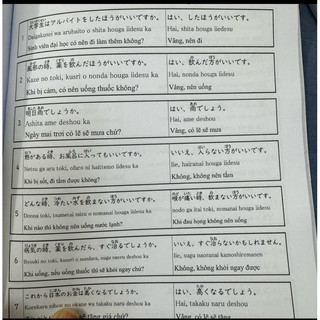 1
大学生はアルバイトをしたほうがいいですか。
Daigakusei wa arubaito o shita houga iidesu ka
Sinh viên đại học có nên đi làm thêm không?
はい、したほうがいいです。
Hai, shita houga iidesu
Vâng, nên đi
2
風邪の時、薬を飲んだほうがいいですか。
Kaze no toki, kusuri o nonda houga iidesu ka
Khi bị cảm, có nên uống thuốc không?
はい、飲んだ方がいいです。
Hai, nonda houga iidesu
Vâng, nên uống
3
明日雨でしょうか。
Ashita ame deshou ka
Ngày mai trời có lẽ sẽ mưa chứ?
はい、雨でしょう。
Hai, ame deshou
Vâng, có lẽ sẽ mưa
4
熱がある時、お風呂に入ってもいいですか。
Netsu ga aru toki, ofuro ni haittemo iidesu ka
Khi bị sốt, đi tắm được không?
いいえ、入らない方がいいです。
Iie, hairanai houga iidesu
Không, không nên tắm
5
どんな時、冷たい水を飲まない方がいいですか。
Donna toki, tsumetai mizu o nomanai houga iidesu ka
Khi nào thì không nên uống nước lạnh?
喉が痛い時、飲まない方がいいです。
nodo ga itai toki, nomanai houga iidesu
Khi đau họng không nên uống
6
病気の時、薬を飲んだら、すぐ治るでしょうか。
Byouki no toki, kusuri o nondara, sugu naoru deshou ka
Khi bị bệnh, nếu uống thuốc thì sẽ khỏi ngay chứ?
いいえ、すぐ治らないかもしれません。
Iie, sugu naoranai kamoshiremasen
Không, không khỏi ngay được
7
これから日本のお金は高くなるでしょうか。
Korekara nihon no okane wa takaku naru deshou ka
sẽ tăng giá chứ?
はい、高くなるでしょう。
Hai, takaku naru deshou
Vâng, có lẽ sẽ tăng